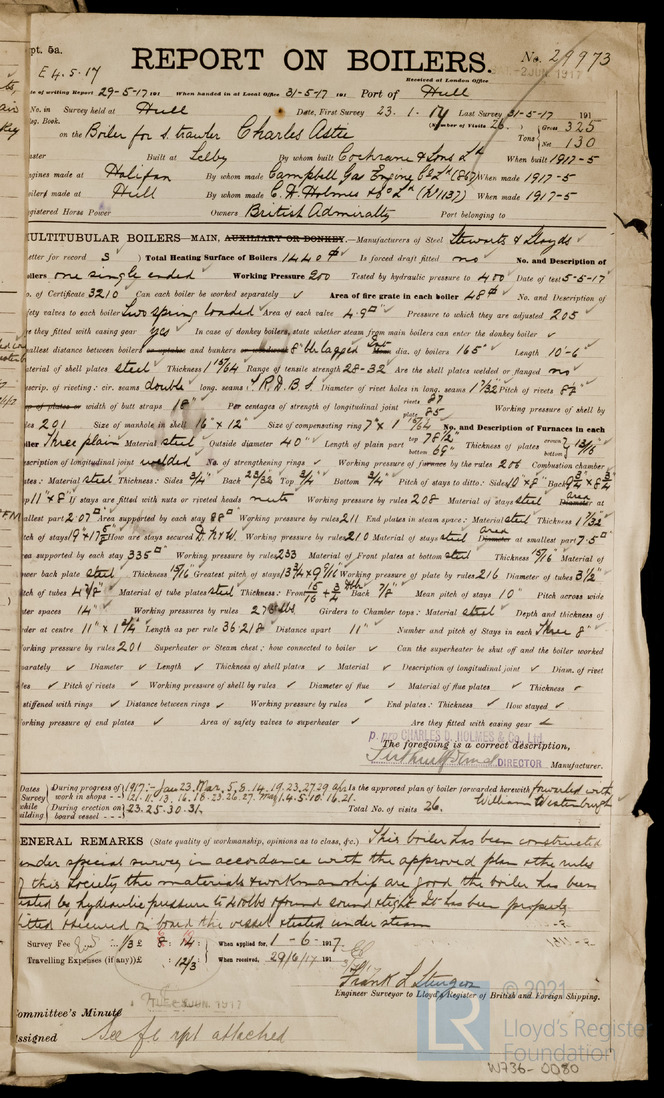 pt. 5a.
REPORT ON BOILERS.
No. 29973
E 4.5.17
Received at London Office
2 JUN. 1917
of writing Report 29-5-17 191 When handed in at Local Office 31-5-17 191 Port of Hull
No. in Survey held at Hull Date, First Survey 23.1.17 Last Survey 31-5-17 191
eg. Book. (Number of Visits 26.)
on the Boiler for s. trawler Charles Astie Tons Gross 325 Net 130
aster Built at Selby By whom built Cochrane & Sons Ld When built 1917-5
ngines made at Halifax By whom made Campbell Gas Engine Co Ld (867) When made 1917-5
oilers made at Hull By whom made C. D. Holmes & Co Ld (No 1137) When made 1917-5
egistered Horse Power Owners British Admiralty Port belonging to
MULTITUBULAR BOILERS—MAIN, AUXILIARY OR DONKEY.—Manufacturers of Steel Stewarts & Lloyds
etter for record S ) Total Heating Surface of Boilers 1440 Is forced draft fitted no No. and Description of
oilers one single ended Working Pressure 200 Tested by hydraulic pressure to 400 Date of test 5-5-17
o. of Certificate 3210 Can each boiler be worked separately ✓ Area of fire grate in each boiler 48 No. and Description of
afety valves to each boiler Two spring loaded Area of each valve 4.9 Pressure to which they are adjusted 205
re they fitted with easing gear yes In case of donkey boilers, state whether steam from main boilers can enter the donkey boiler ✓
mallest distance between boilers or uptakes and bunkers or woodwork 8" bk lagged Int dia. of boilers 165" Length 10'-6"
aterial of shell plates steel Thickness 1 15/64 Range of tensile strength 28-32 Are the shell plates welded or flanged no
escrip. of riveting: cir. seams double long. seams T.R.D.B.S. Diameter of rivet holes in long. seams 1 7/32 Pitch of rivets 8 1/2"
ap of plates or width of butt straps 18" Per centages of strength of longitudinal joint rivets 87 plate 85 Working pressure of shell by
les 201 Size of manhole in shell 16" x 12" Size of compensating ring 7" x 1 15/64 No. and Description of Furnaces in each
oiler Three plain Material steel Outside diameter 40" Length of plain part top 78 1/2" bottom 69" Thickness of plates crown bottom 13/16"
escription of longitudinal joint welded No. of strengthening rings ✓ Working pressure of furnace by the rules 206 Combustion chamber
ates: Material steel Thickness: Sides 3/4" Back 23/32 Top 3/4" Bottom 3/4" Pitch of stays to ditto: Sides 10 x 8" Back
op 11" x 8" If stays are fitted with nuts or riveted heads nuts Working pressure by rules 208 Material of stays steel area Diameter at
allest part 2.07 Area supported by each stay 88 Working pressure by rules 211 End plates in steam space: Material steel Thickness 1 7/32
tch of stays How are stays secured D.N & W. Working pressure by rules 210 Material of stays steel area Diameter at smallest part 7.5
ea supported by each stay 335 Working pressure by rules 233 Material of Front plates at bottom steel Thickness 15/16 Material of
wer back plate steel Thickness 15/16 Greatest pitch of stays 13 3/4 x 9 7/16 Working pressure of plate by rules 216 Diameter of tubes 3 1/2"
tch of tubes 4 7/8 Material of tube plates steel Thickness: Front Back 7/8" Mean pitch of stays 10" Pitch across wide
ter spaces 14" Working pressures by rules lbs Girders to Chamber tops: Material steel Depth and thickness of
rder at centre 11" x 1 3/4 Length as per rule 36.218 Distance apart 11" Number and pitch of Stays in each Three 8"
orking pressure by rules 201 Superheater or Steam chest: how connected to boiler ✓ Can the superheater be shut off and the boiler worked
parately ✓ Diameter ✓ Length ✓ Thickness of shell plates ✓ Material ✓ Description of longitudinal joint ✓ Diam. of rivet
les ✓ Pitch of rivets ✓ Working pressure of shell by rules ✓ Diameter of flue ✓ Material of flue plates ✓ Thickness ✓
stiffened with rings ✓ Distance between rings ✓ Working pressure by rules ✓ End plates: Thickness ✓ How stayed ✓
orking pressure of end plates ✓ Area of safety valves to superheater ✓ Are they fitted with easing gear ✓
p. pro CHARLES D. HOLMES & Co. Ltd.
The foregoing is a correct description,
DIRECTOR Manufacturer.
Dates During progress of 1917:- Jan 23. Mar. 5. 8. 14. 19. 23. 27. 29 Apl Is the approved plan of boiler forwarded herewith forwarded with
Survey work in shops - - 12. 11. 13. 16. 18. 23. 26. 27. May 1. 4. 5. 10. 16. 21. William Westenburgh
while During erection on 23. 25. 30. 31. Total No. of visits 26.
ilding board vessel - - -
ENERAL REMARKS (State quality of workmanship, opinions as to class, &c.) This boiler has been constructed
under special survey in accordance with the approved plan & the rules
of this Society the materials & workmanship are good the boiler has been
tested by hydraulic pressure to 400 lbs & found sound & tight It has been properly
fitted & secured on board the vessel & tested under steam
Survey Fee £ 8 : 14 : When applied for, 1-6-1917
Travelling Expenses (if any) £ : 12/3 : When received, 29/6/17 191
Frank L. Sturgeon
Engineer Surveyor to Lloyd's Register of British and Foreign Shipping.
ommittee's Minute
ssigned See f.e. rpt attached
© 2021
LR
Lloyd's Register
Foundation
W736-0080